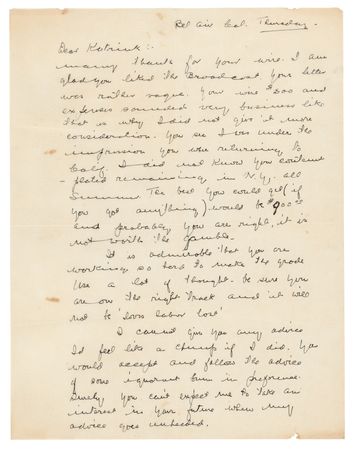 Bel Air Cal. Thursday.
Dear Katrink:-
many thanks for your wire. I am
glad you liked the Broadcast your letter
was rather vague. Your wire and
expenses sounded very business like
That is why I did not give it more
consideration. You see I was under the
impression you were returning to
Calif. I did not know you contem
- plated remaining in N.Y. all
Summer. The best you could get (if
you got anything) would be $900.00
and probably you are right, it is
not worth the gamble.
It is admirable that you are
working so hard to make the grade
Use a lot of thought - be sure you
are on the right track and it will
not be 'loves labor lost'
I cannot give you any advice
I'd feel like a chump if I did. You
would accept and follow the advice
of some ignorant bum in preference.
Surely you can't expect me to take an
interest in your future when my
advice goes unheeded.